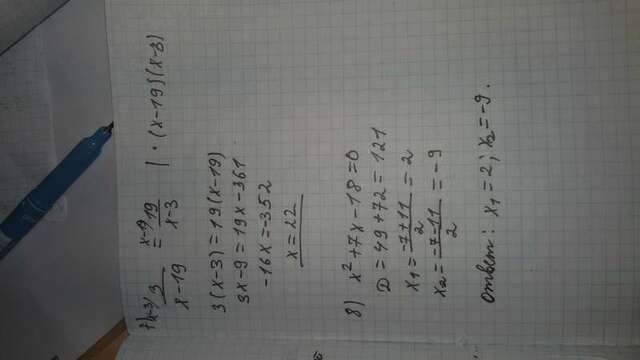 7) x-3/ 3/(x-19) = x-19/ 19/(x-3) | · (x-19)(x-3)
3(x-3)=19(x-19)
3x-9=19x-361
-16x=-352
x=22
8) x²+7x-18=0
D=49+72=121
x₁=(-7+11)/2=2
x₂=(-7-11)/2=-9
Ответ: x₁=2; x₂=-9.